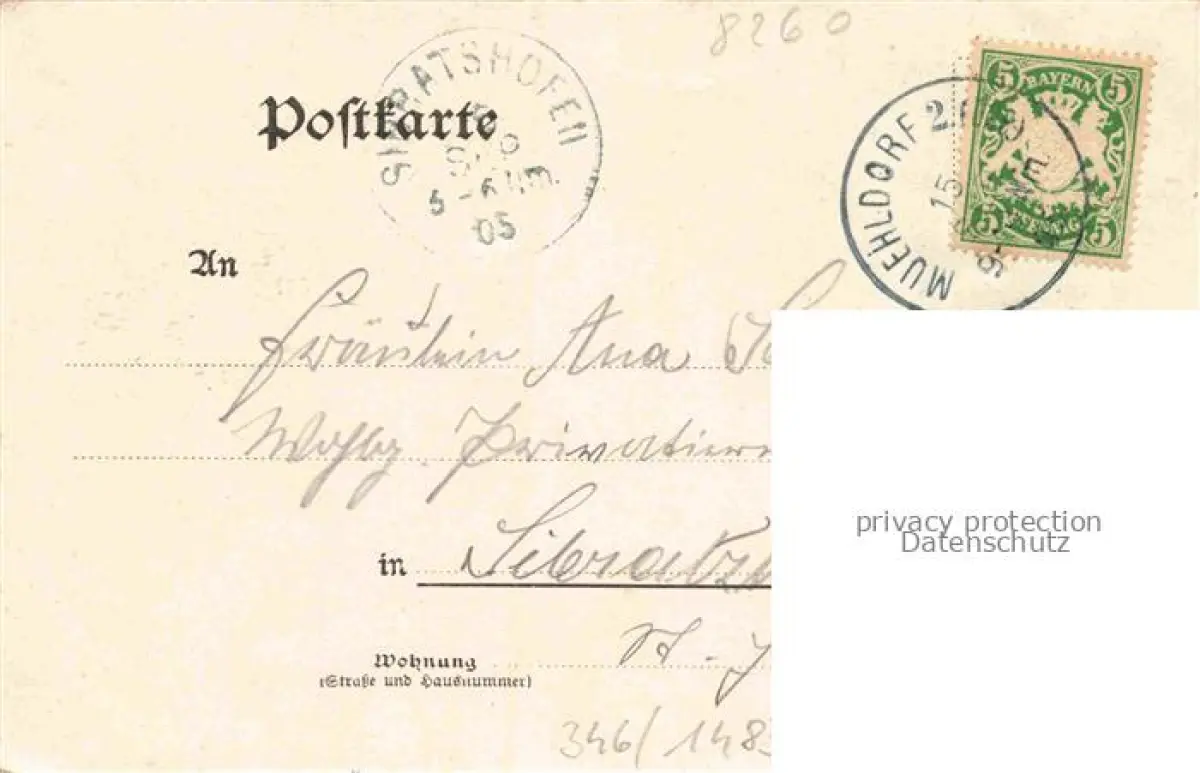 8260
Postkarte
SIBRATSHOFEN
SEP
5-6 Nm.
05
MUEHLDORF 2
15
BAYERN
5 5
PFENNIG
5 5
An
Fräulein Ana
Wohlg. Privatier
in Sibratz
Wohnung
(Straße und Hausnummer)
346/1483
privacy protection
Datenschutz